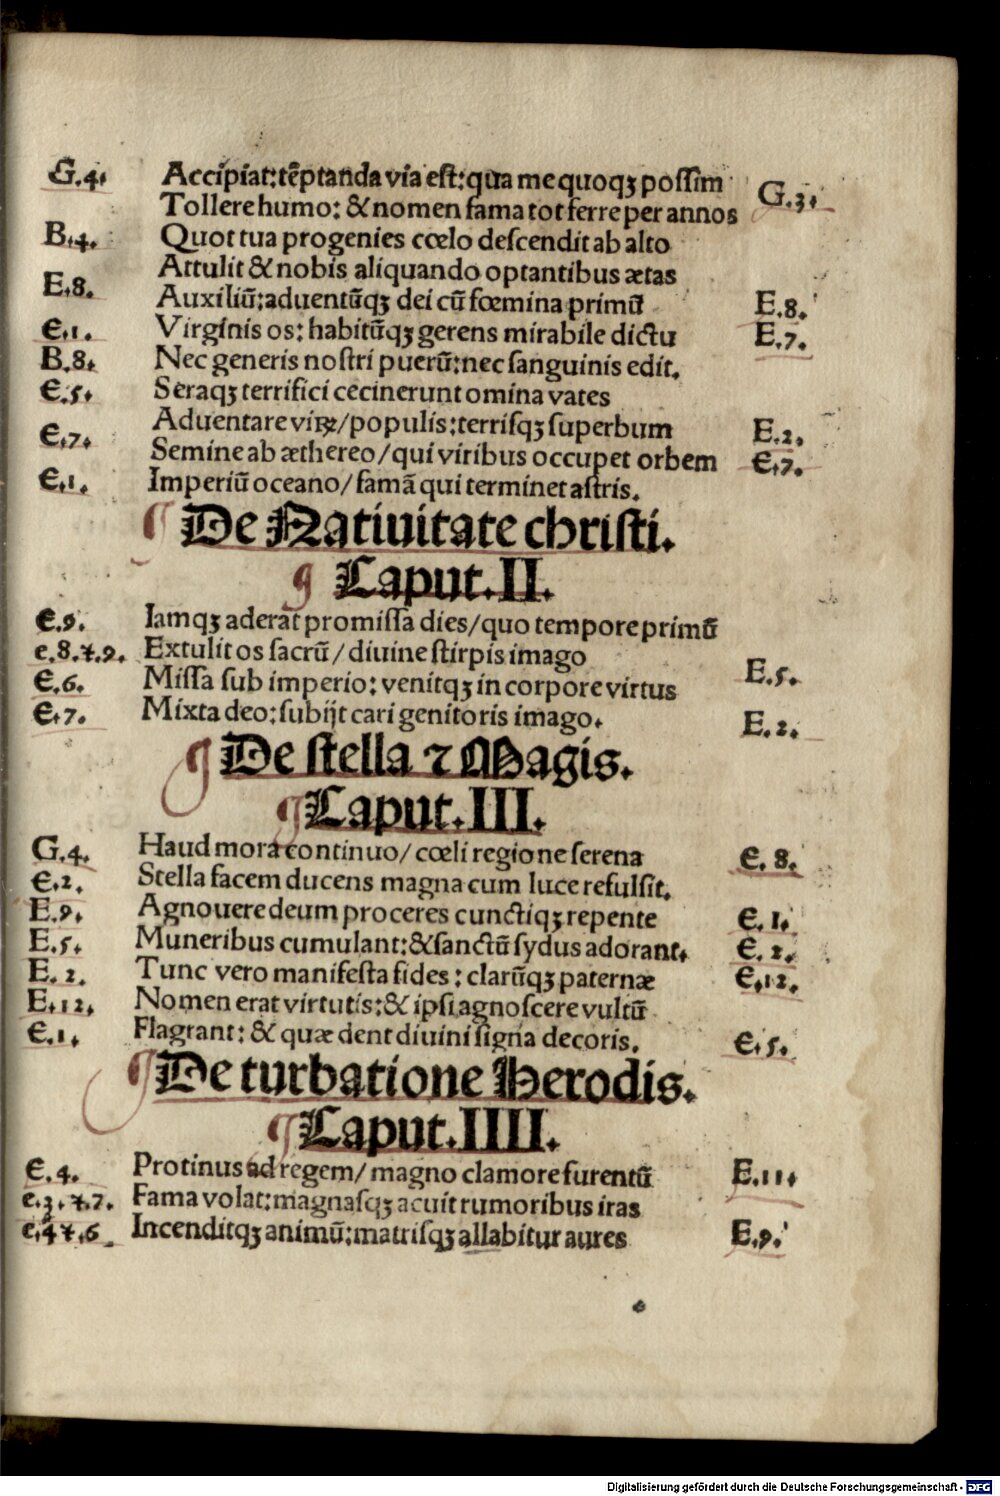 G.4. Accipiat: tẽptanda via est: qua me quoqꝫ possim
Tollere humo: & nomen fama tot ferre per annos G.3.
B.4. Quot tua progenies cœlo descendit ab alto
Attulit & nobis aliquando optantibus ætas
E.8. Auxiliũ: aduentũqꝫ dei cũ fœmina primũ E.8.
E.1. Virginis os: habitũqꝫ gerens mirabile dictu E.7.
B.8. Nec generis nostri puerũ: nec sanguinis edit.
E.5. Seraqꝫ terrifici cecinerunt omina vates
Aduentare viꝝ/ populis: terrisqꝫ superbum E.2.
E.7. Semine ab æthereo/ qui viribus occupet orbem E.7.
E.1. Imperiũ oceano/ famã qui terminet astris.
De Natiuitate christi.
Caput. II.
E.9. Iamqꝫ aderat promissa dies/ quo tempore primũ
e.8.⁊.9. Extulit os sacrũ/ diuine stirpis imago
E.6. Missa sub imperio: venitqꝫ in corpore virtus E.5.
E.7. Mixta deo: subijt cari genitoris imago. E.2.
De stella ⁊ Magis.
Caput. III.
G.4. Haud mora continuo/ cœli regione serena E.8.
E.2. Stella facem ducens magna cum luce refulsit.
E.9. Agnouere deum proceres cunctiqꝫ repente E.1.
E.5. Muneribus cumulant: & sanctũ sydus adorant. E.2.
E.2. Tunc vero manifesta fides: clarũqꝫ paternæ E.12.
E.12. Nomen erat virtutis: & ipsi agnoscere vultũ
E.1. Flagrant: & quæ dent diuini signa decoris. E.5.
De turbatione Herodis.
Caput. IIII.
E.4. Protinus ad regem/ magno clamore furentũ E.11.
e.3.⁊.7. Fama volat: magnasqꝫ acuit rumoribus iras
e.4⁊.6 Incenditqꝫ animũ: matrisqꝫ allabitur aures E.9.
Digitalisierung gefördert durch die Deutsche Forschungsgemeinschaft - DFG